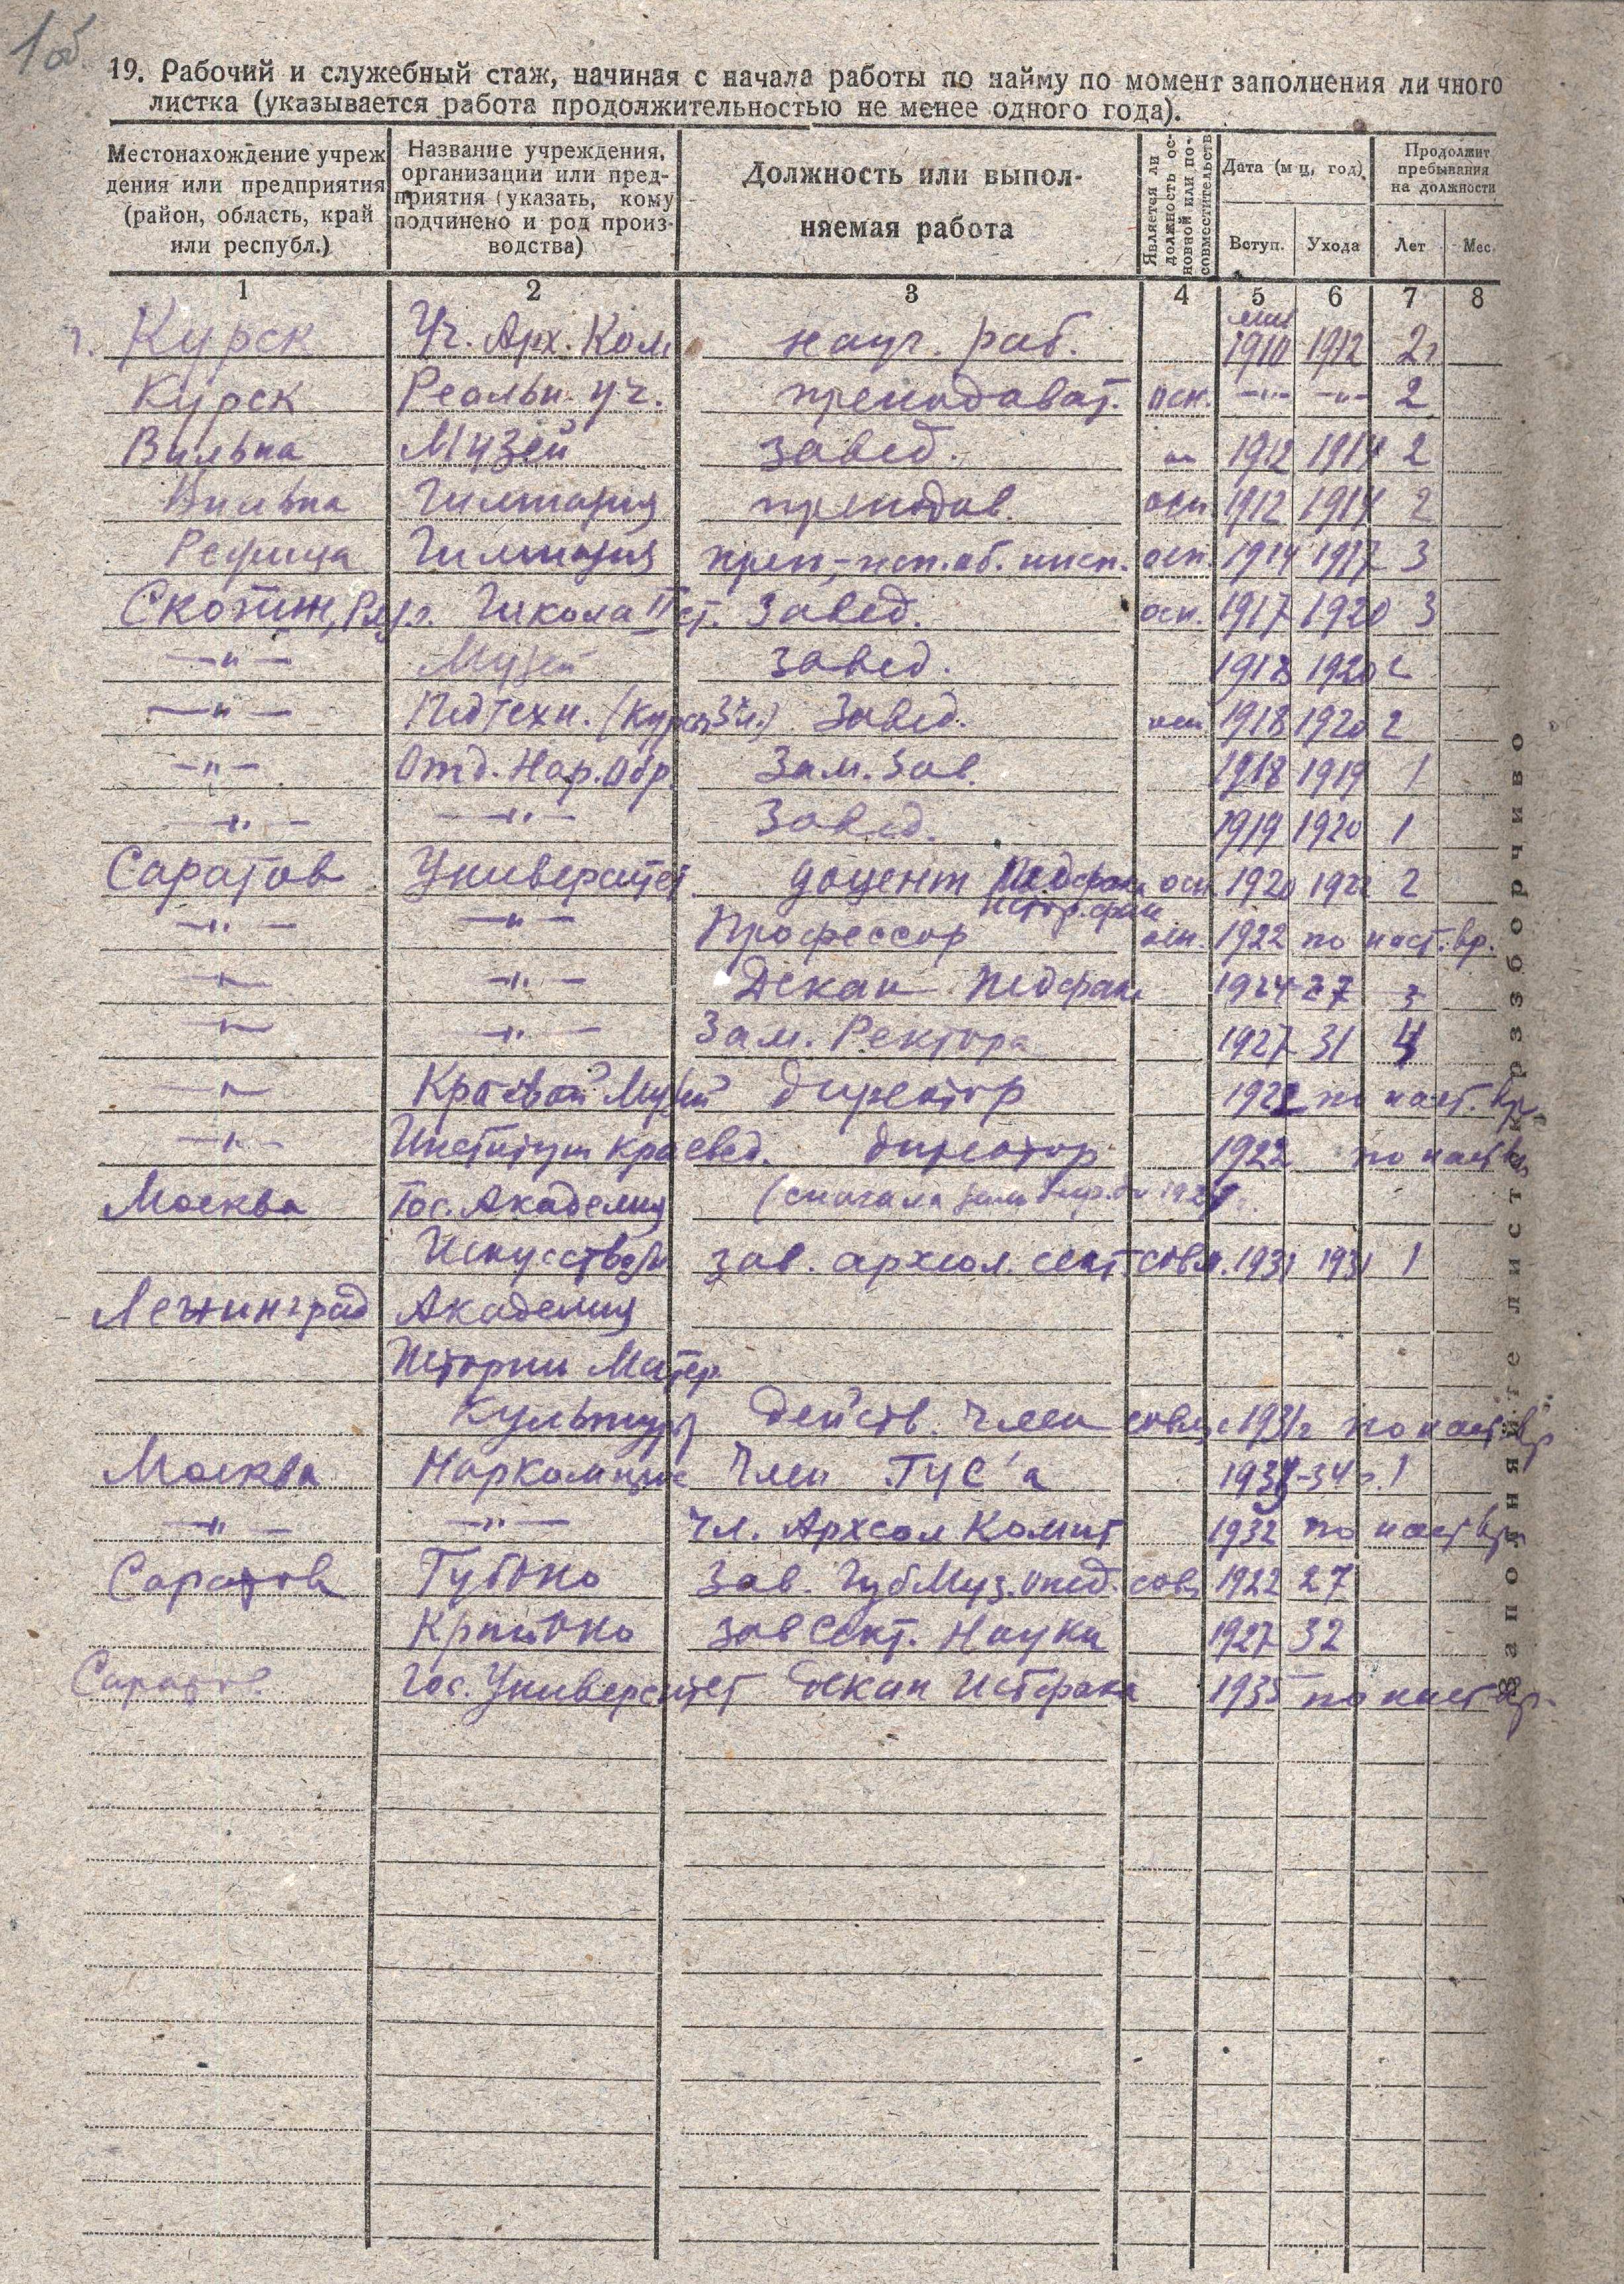 1об
19. Рабочий и служебный стаж, начиная с начала работы по найму по момент заполнения личного
листка (указывается работа продолжительностью не менее одного года).
Местонахождение учреждения или предприятия (район, область, край или республ.)
Название учреждения, организации или предприятия (указать, кому подчинено и род производства)
Должность или выполняемая работа
Является ли должность основной или по совместительств
Дата (м-ц, год)
Вступ. Ухода
Продолжит пребывания на должности
Лет Мес.
1 2 3 4 5 6 7 8
г. Курск Уч. Арх. Ком науч. раб. 1910 1912 2г
Курск Реальн. уч. преподават. осн. —"— —"— 2
Вильна Музей завед. " 1912 1914 2
Вильна Гимназия преподав. осн 1912 1914 2
Гимназия преп., исп. об. инсп. осн. 1914 1917 3
Школа II ст. Завед. осн. 1917 1920 3
—"— Музей завед. 1918 1920 2
—"— ПедТехн. Завед. осн 1918 1920 2
—"— Отд. Нар. Обр. Зам. Зав. 1918 1919 1
—"— —"— Завед. 1919 1920 1
Саратов Университет доцент Педфака осн 1920 1922 2
истор. фак
—"— —"— Профессор осн. 1922 по наст. вр.
—"— —"— Декан Педфака 1924 27 3
—"— —"— Зам. Ректора 1927 31 4
—"— Краевой Музей директор 1922 по наст. вр.
—"— Институт краевед. директор 1922 по наст вр
Москва Гос. Академия (сначала
Искусствозн зав. археол. сект. совм. 1931 1931 1
Ленинград Академия
Истории Матер.
Культуры Действ. Член совм. с 1931г по наст. вр
Москва Наркомпрос Член ГУС'а -34 г. 1
—"— —"— Чл. Археол Комит 1932 по наст вр
Саратов ГубОно Зав. ГубМуз. отд. совм 1922 27
КрайОно Зав Сект. Науки 1927 32
Саратов Гос. Университет декан Истфака 1935 по наст вр.
Заполняйте листок разборчиво